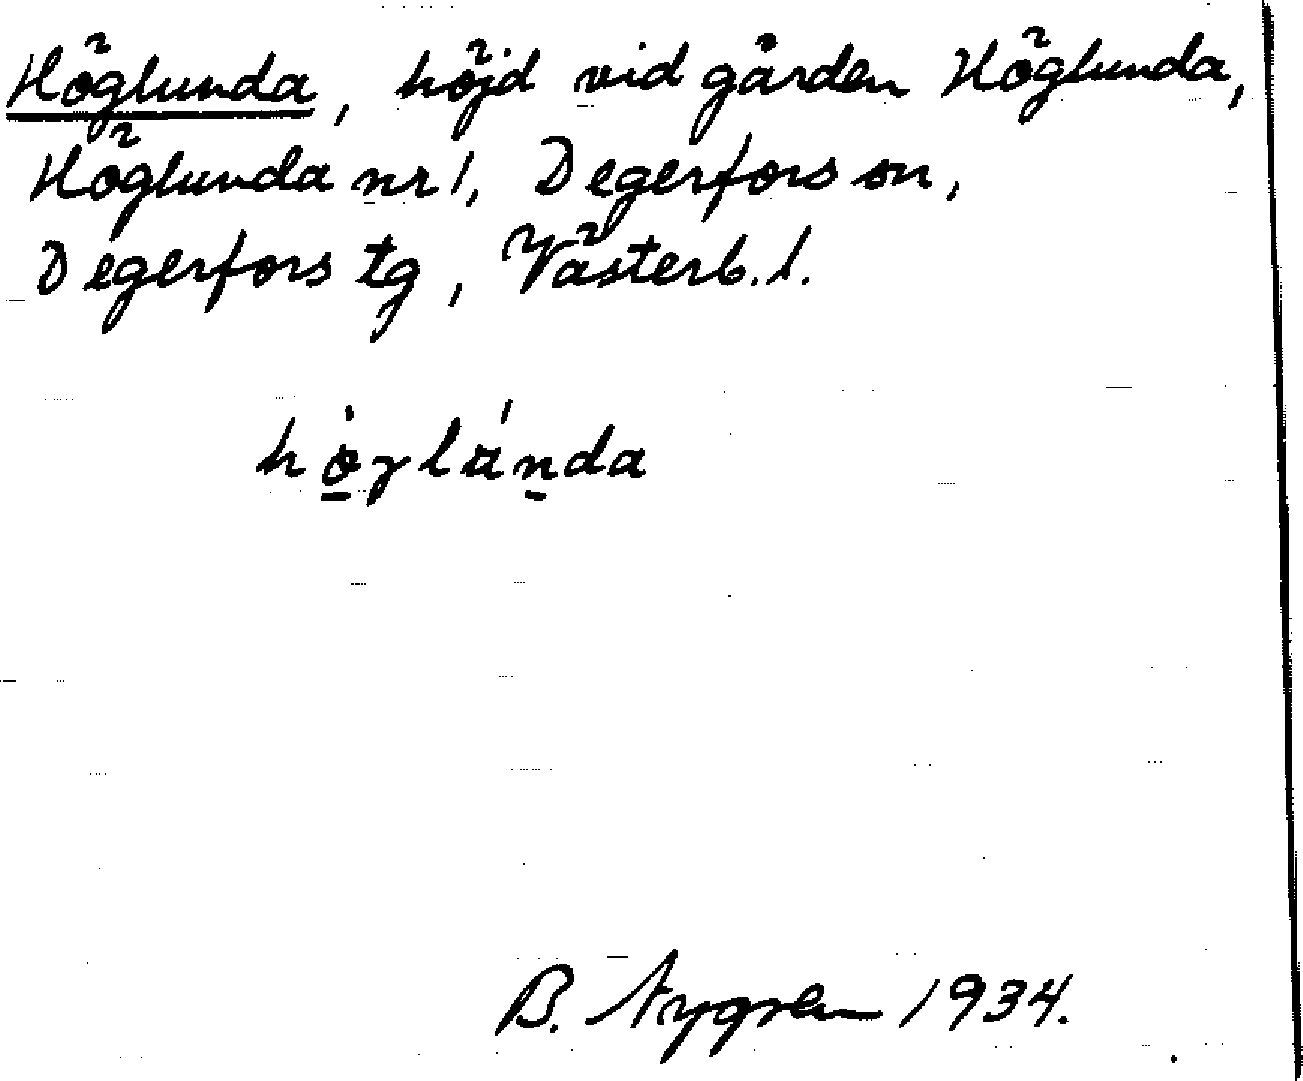 Höglunda, höjd vid gården Höglunda,
Höglunda nr 1, Degerfors sn,
Degerfors tg, Västerb. l.
höglunda
B. Nygren 1934.